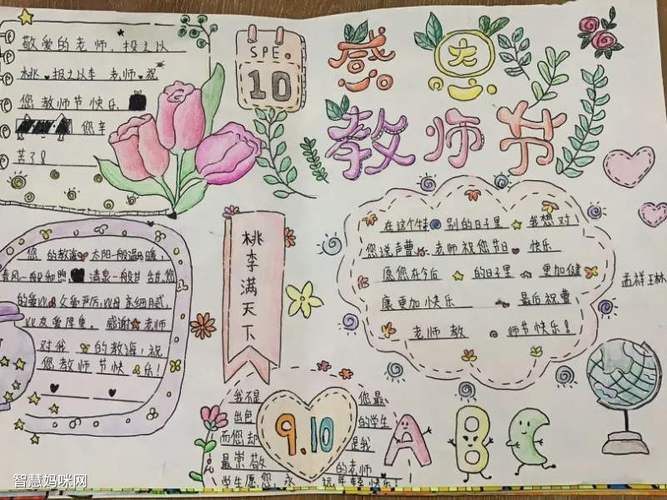 敬爱的老师，投之以
桃，报之以李 老师，祝
您教师节快乐
您辛
苦了！
SPE.
10
感恩
教师节
桃李满天下
您的教诲 太阳一般温暖，
春风一般和煦 清泉一般甘甜，您
的爱，比父爱严厉，比母亲细腻，
比友爱厚重。感谢 老师
对我 的教诲，祝
您教师节快 乐！
在这个特 别的日子里 我想对
您说声 老师祝您节日 快乐
愿您在今后 的日子里 更加健
康更加快乐 最后祝
老师教 师节快乐！
我不是 您最
出色 的学生
而您却 是我
最崇敬 的老师
学生愿您永 远年轻快乐！
9.10
A B C
智慧妈咪网